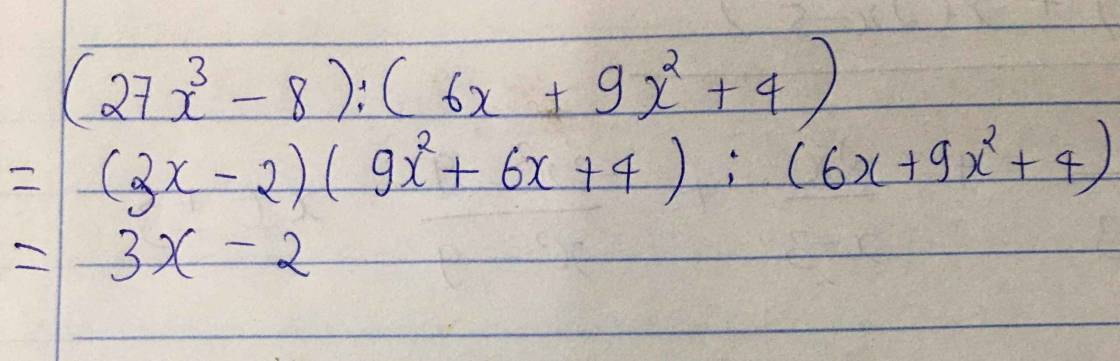 (27x³ - 8) : (6x + 9x² + 4)
= (3x - 2)(9x² + 6x + 4) : (6x + 9x² + 4)
= 3x - 2